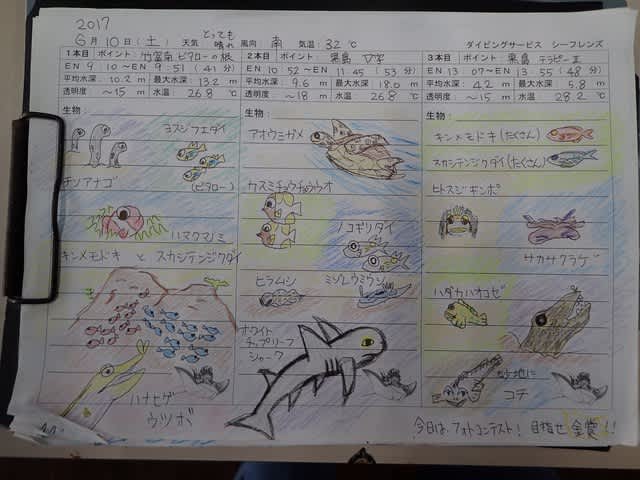 2017
6月 10日 (土) 天気 とっても晴れ 風向 南 気温: 32 ℃ ダイビングサービス シーフレンズ
1本目 ポイント: 竹富南 ビタローの根
EN 9 : 10 ～EN 9 : 51 ( 41 分)
平均水深: 10.2 m 最大水深: 13.2 m
透明度: ～15 m 水温 26.8 ℃
生物:
ヨスジフエダイ
(ビタロー)
チンアナゴ
ハマクマノミ
キンメモドキ と スカシテンジクダイ
ハナヒゲ
ウツボ
2本目 ポイント: 黒島 V字
EN 10 : 52 ～EN 11 : 45 ( 53 分)
平均水深: 9.6 m 最大水深: 18.0 m
透明度: ～18 m 水温 26.8 ℃
生物:
アオウミガメ
カスミチョウチョウウオ
ノコギリダイ
ヒラムシ ミゾレウミウシ
ホワイト
チップリーフ
シャーク
3本目 ポイント: 黒島
EN 13 : 07 ～EN 13 : 55 ( 48 分)
平均水深: 4.2 m 最大水深: 5.8 m
透明度: ～15 m 水温: 28.2 ℃
生物:
キンメモドキ (たくさん)
スカシテンジクダイ (たくさん)
ヒトスジギンポ
サカサクラゲ
ハダカハオコゼ
砂地に
コチ
今日は、フォトコンテスト! 目指せ 金賞!!